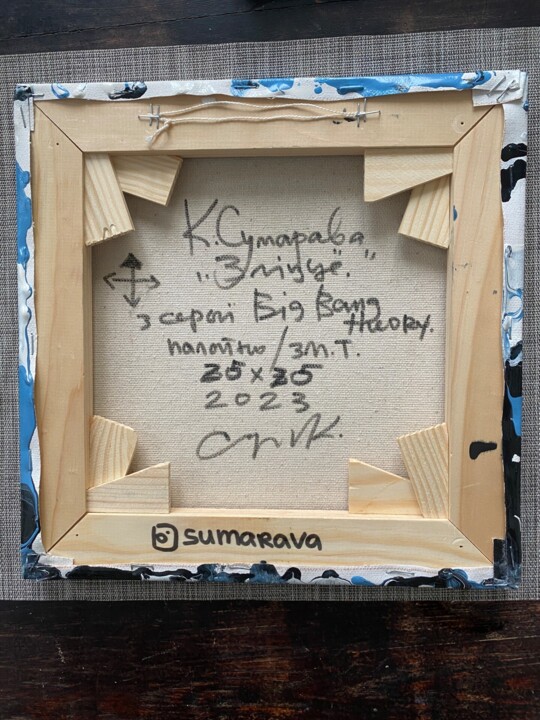 К. Сумарава
„Зліццё.”
з серыі Big Bang
theory.
палатно / зм.т.
25 x 25
2023
sumarava